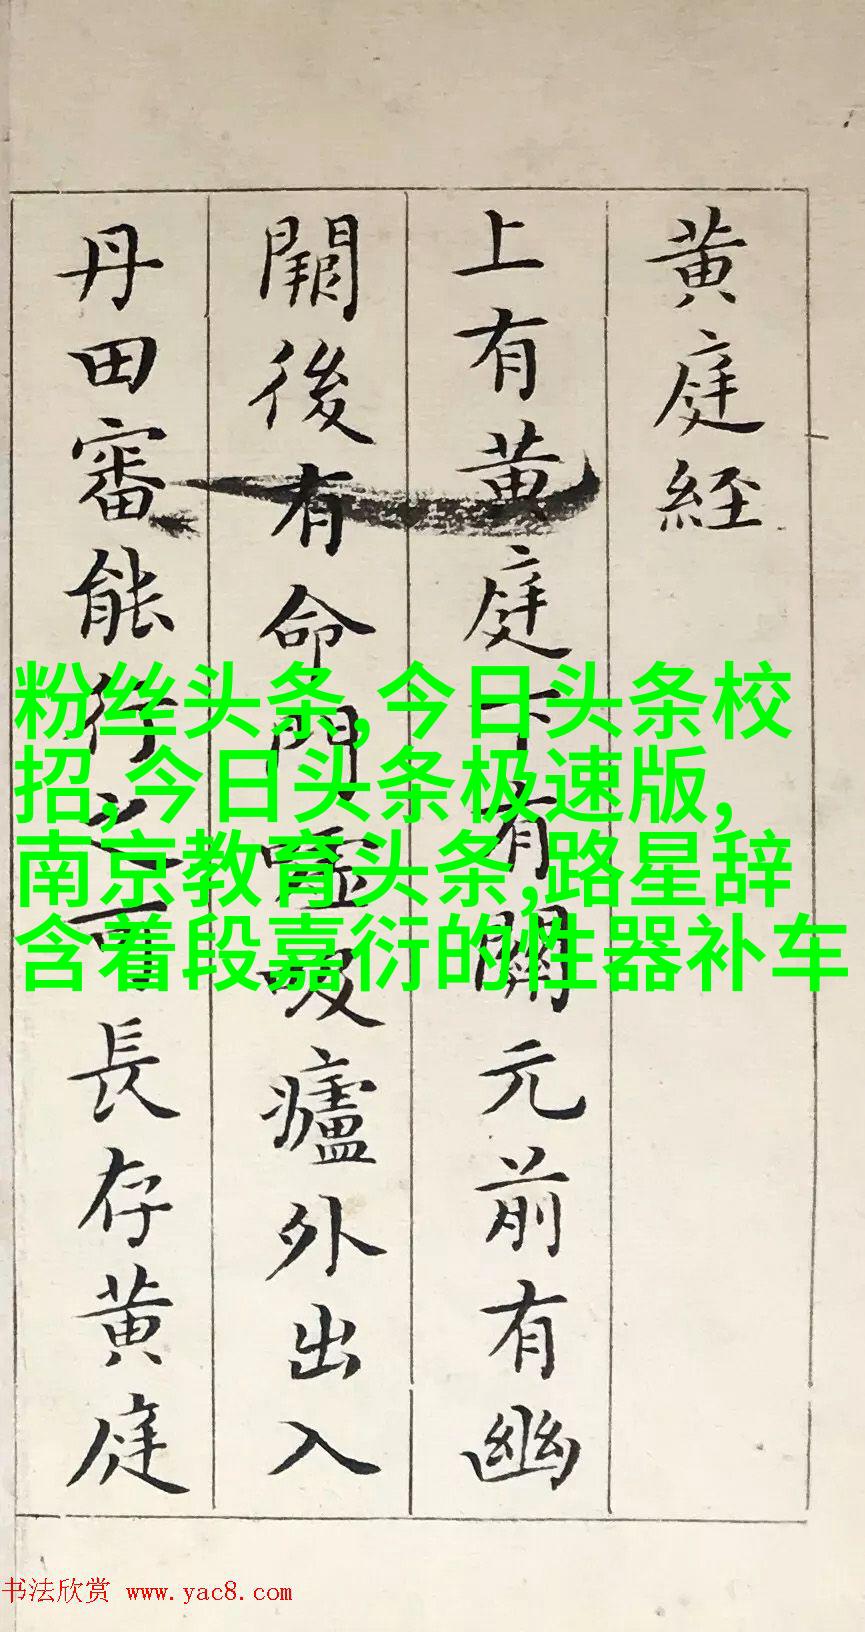 黄庭経
上有黄庭下有關元前有幽
闕後有命門噓吸廬外出入
丹田審能行之可長存黄庭
粉丝头条,今日头条校
招,今日头条极速版,
南京教育头条,路星辞
含着段嘉衍的性器补车
书法欣赏 www.yac8.com